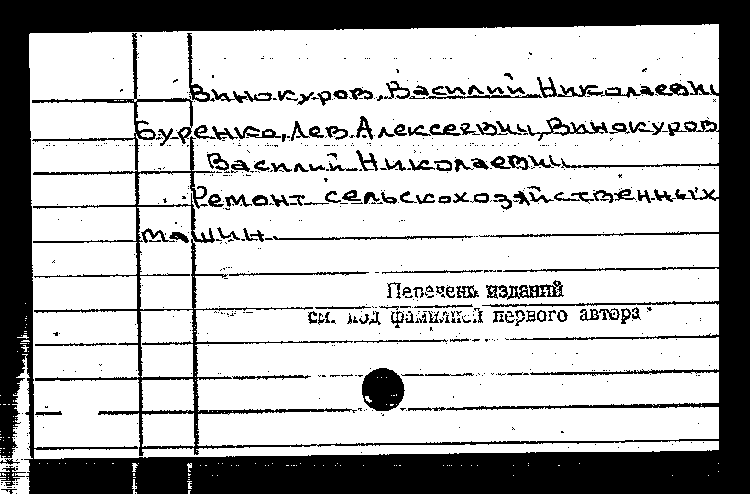 Винокуров, Василий Николаевич
Буренко, Лев Алексеевич, Винокуров
Василий Николаевич
Ремонт сельскохозяйственных
машин.
Перечень изданий
см. под фамилией первого автора